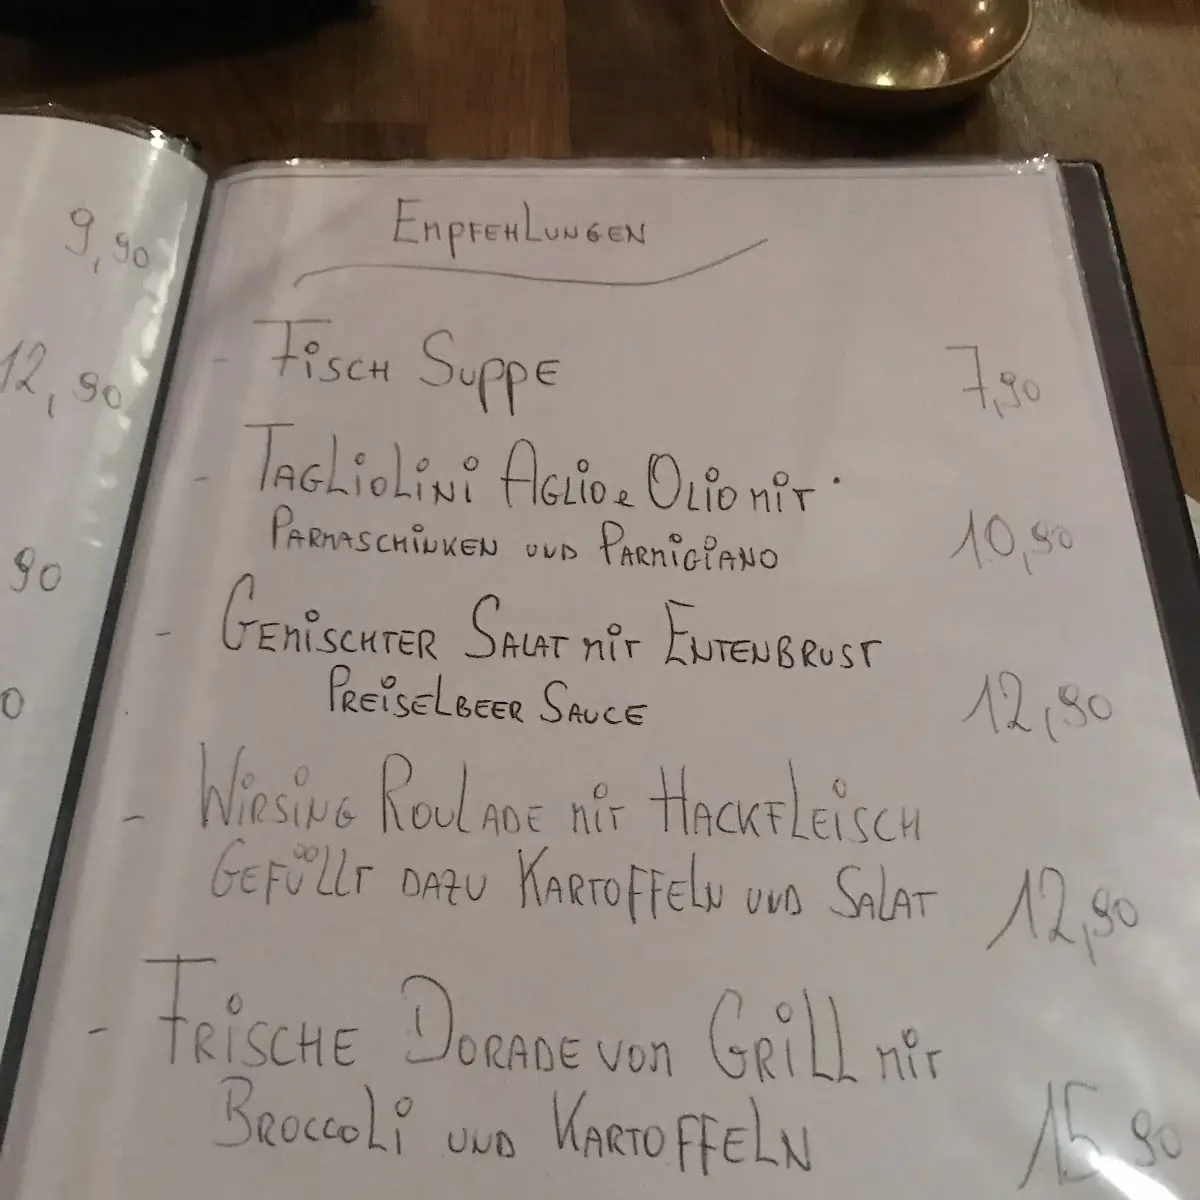 9,90
12,90
90
0
Empfehlungen
- Fisch Suppe 7,90
- Tagliolini Aglio e Olio mit
Parmaschinken und Parmigiano 10,90
- Gemischter Salat mit Entenbrust
Preiselbeer Sauce 12,90
- Wirsing Roulade mit Hackfleisch
Gefüllt dazu Kartoffeln und Salat 12,90
- Frische Dorade von Grill mit
Broccoli und Kartoffeln 15,90